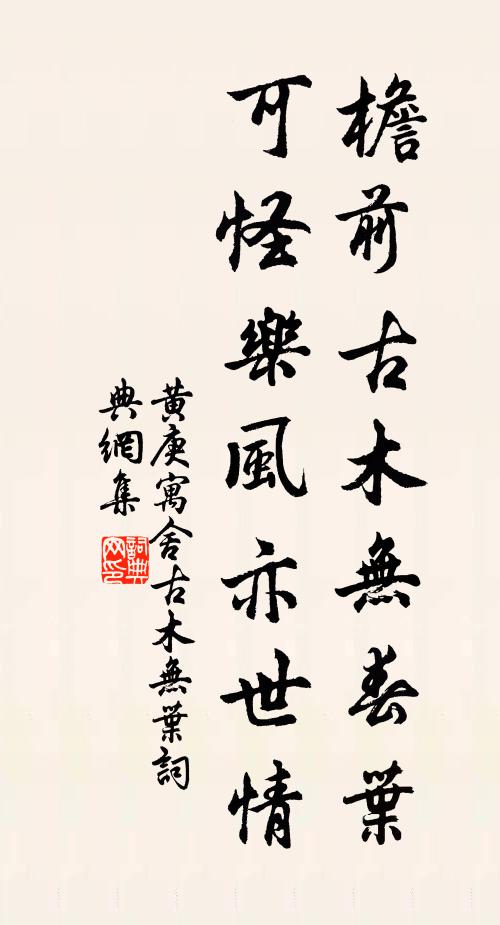 檐前古木無春葉
可怪樂風亦世情
黃庚寓舍古木無葉詞
典網集
詞典網印